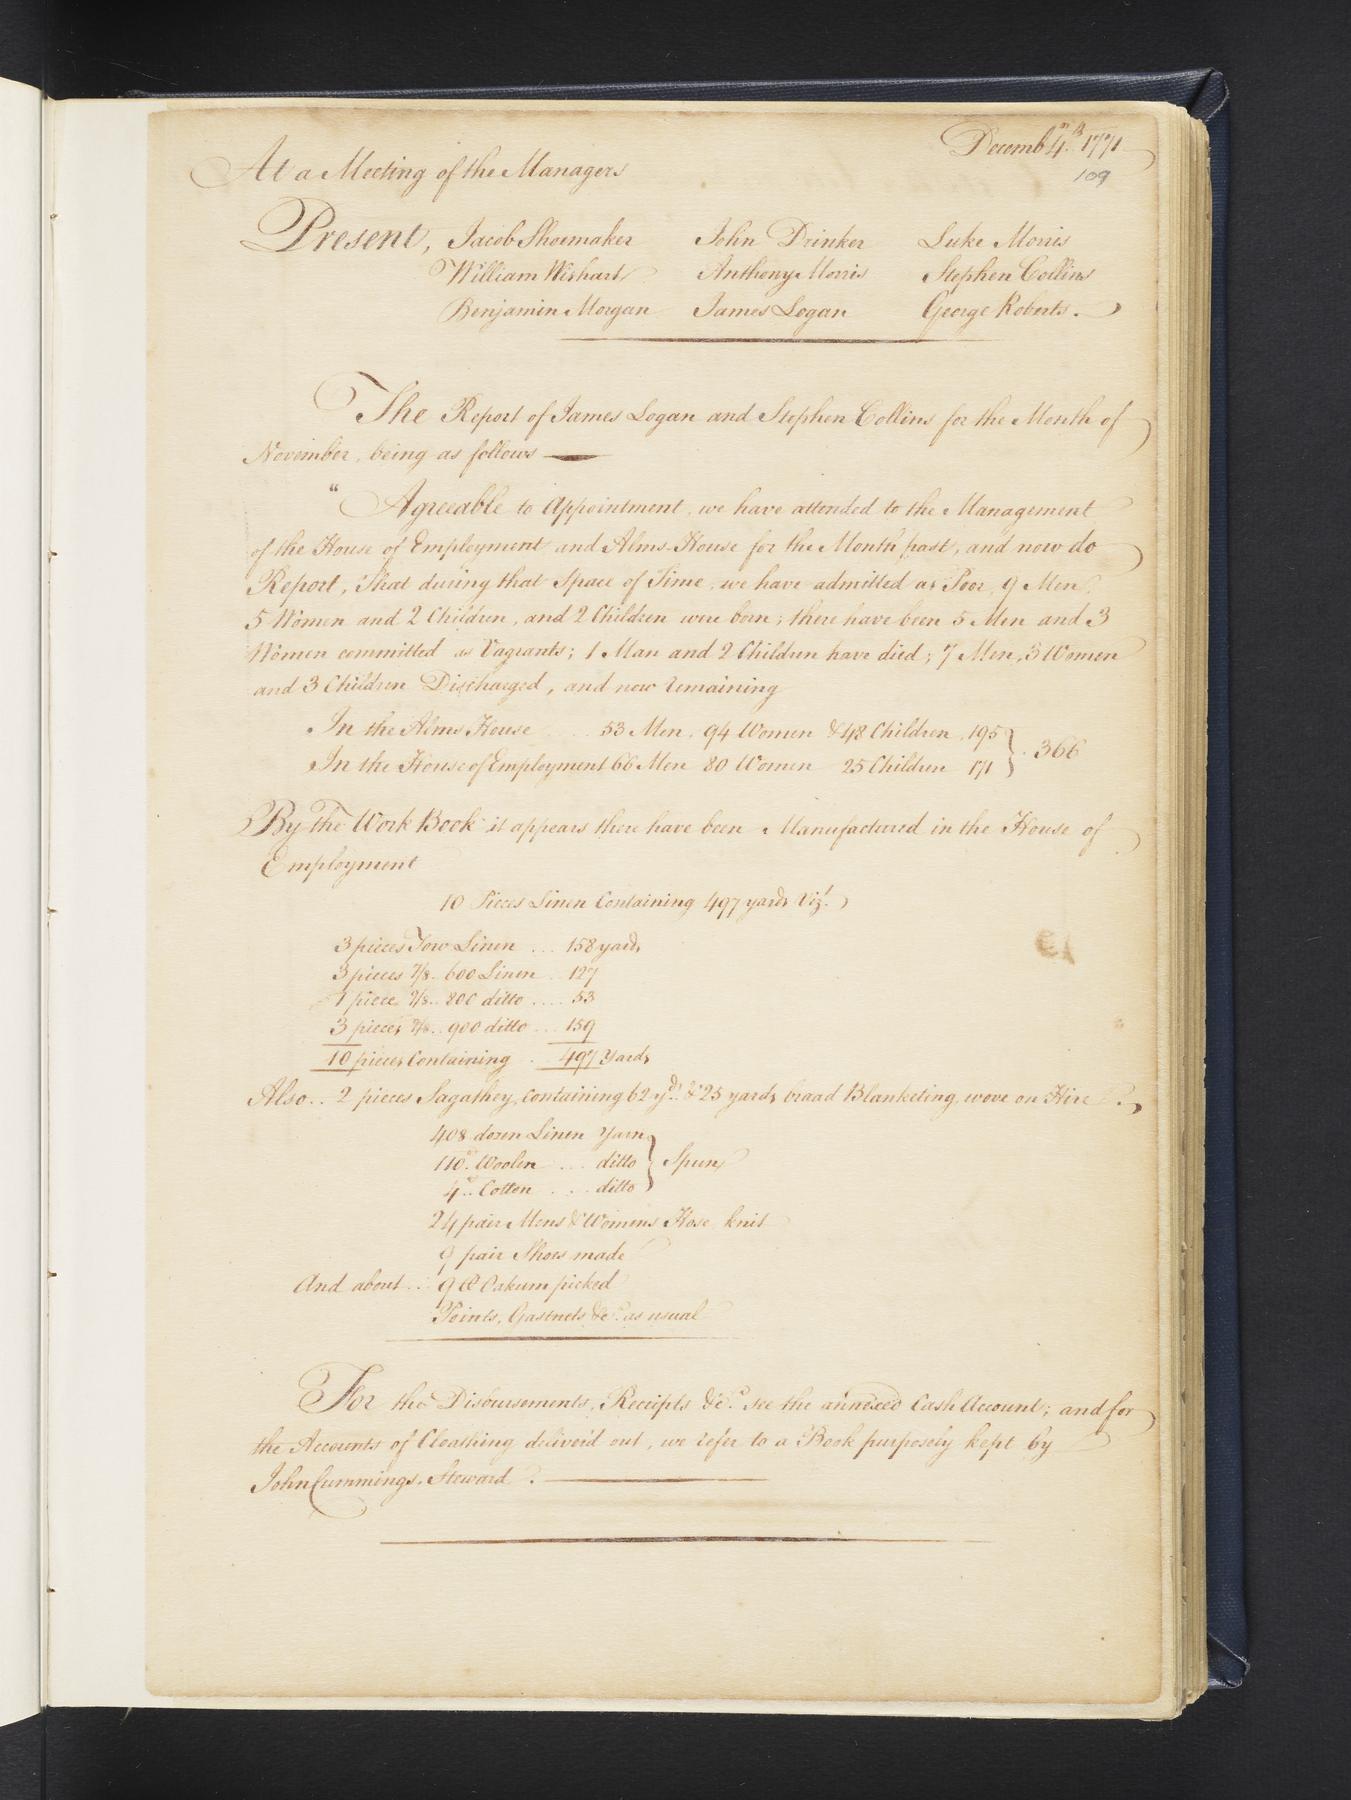 Decembr 4th 1771
109
At a Meeting of the Managers
Present, Jacob Shoemaker John Drinker Luke Morris
William Wishart Anthony Morris Stephen Collins
Benjamin Morgan James Logan George Roberts.
The Report of James Logan and Stephen Collins for the Month of
November, being as follows
"Agreeable to Appointment, we have attended to the Management
of the House of Employment and Alms-House for the Month past, and now do
Report, That during that Space of Time, we have admitted as Poor, 9 Men,
5 Women and 2 Children, and 2 Children were born; there have been 5 Men and 3
Women committed as Vagrants; 1 Man and 2 Children have died; 7 Men, 3 Women
and 3 Children Discharged, and now remaining
In the Alms House .... 53 Men, 94 Women & 48 Children, 195
In the House of Employment 66 Men 80 Women 25 Children 171 } 366
By the Work Book it appears there have been Manufactured in the House of
Employment
10 Pieces Linen Containing 497 yards Vizt.
3 pieces Tow Linen ... 158 yards
3 pieces 7/8.. 600 Linen .. 127
1 piece 7/8.. 800 ditto .... 53
3 pieces 7/8.. 900 ditto ... 159
10 pieces Containing .. 497 Yards
Also.. 2 pieces Sagathey, containing 62 yds. & 25 yards broad Blanketing, wove on Hire.
408 dozen Linen Yarn
110 Woolen ... ditto } Spun
4 Cotton .... ditto
24 pair Mens & Womens Hose knit
9 pair Shoes made
And about... 9 Oakum picked
Points, Gasknets &c. as usual
For the Disbursements, Receipts &c. see the annexed Cash Account; and for
the Accounts of Cloathing deliver'd out, we refer to a Book purposely kept by
John Cummings, Steward.